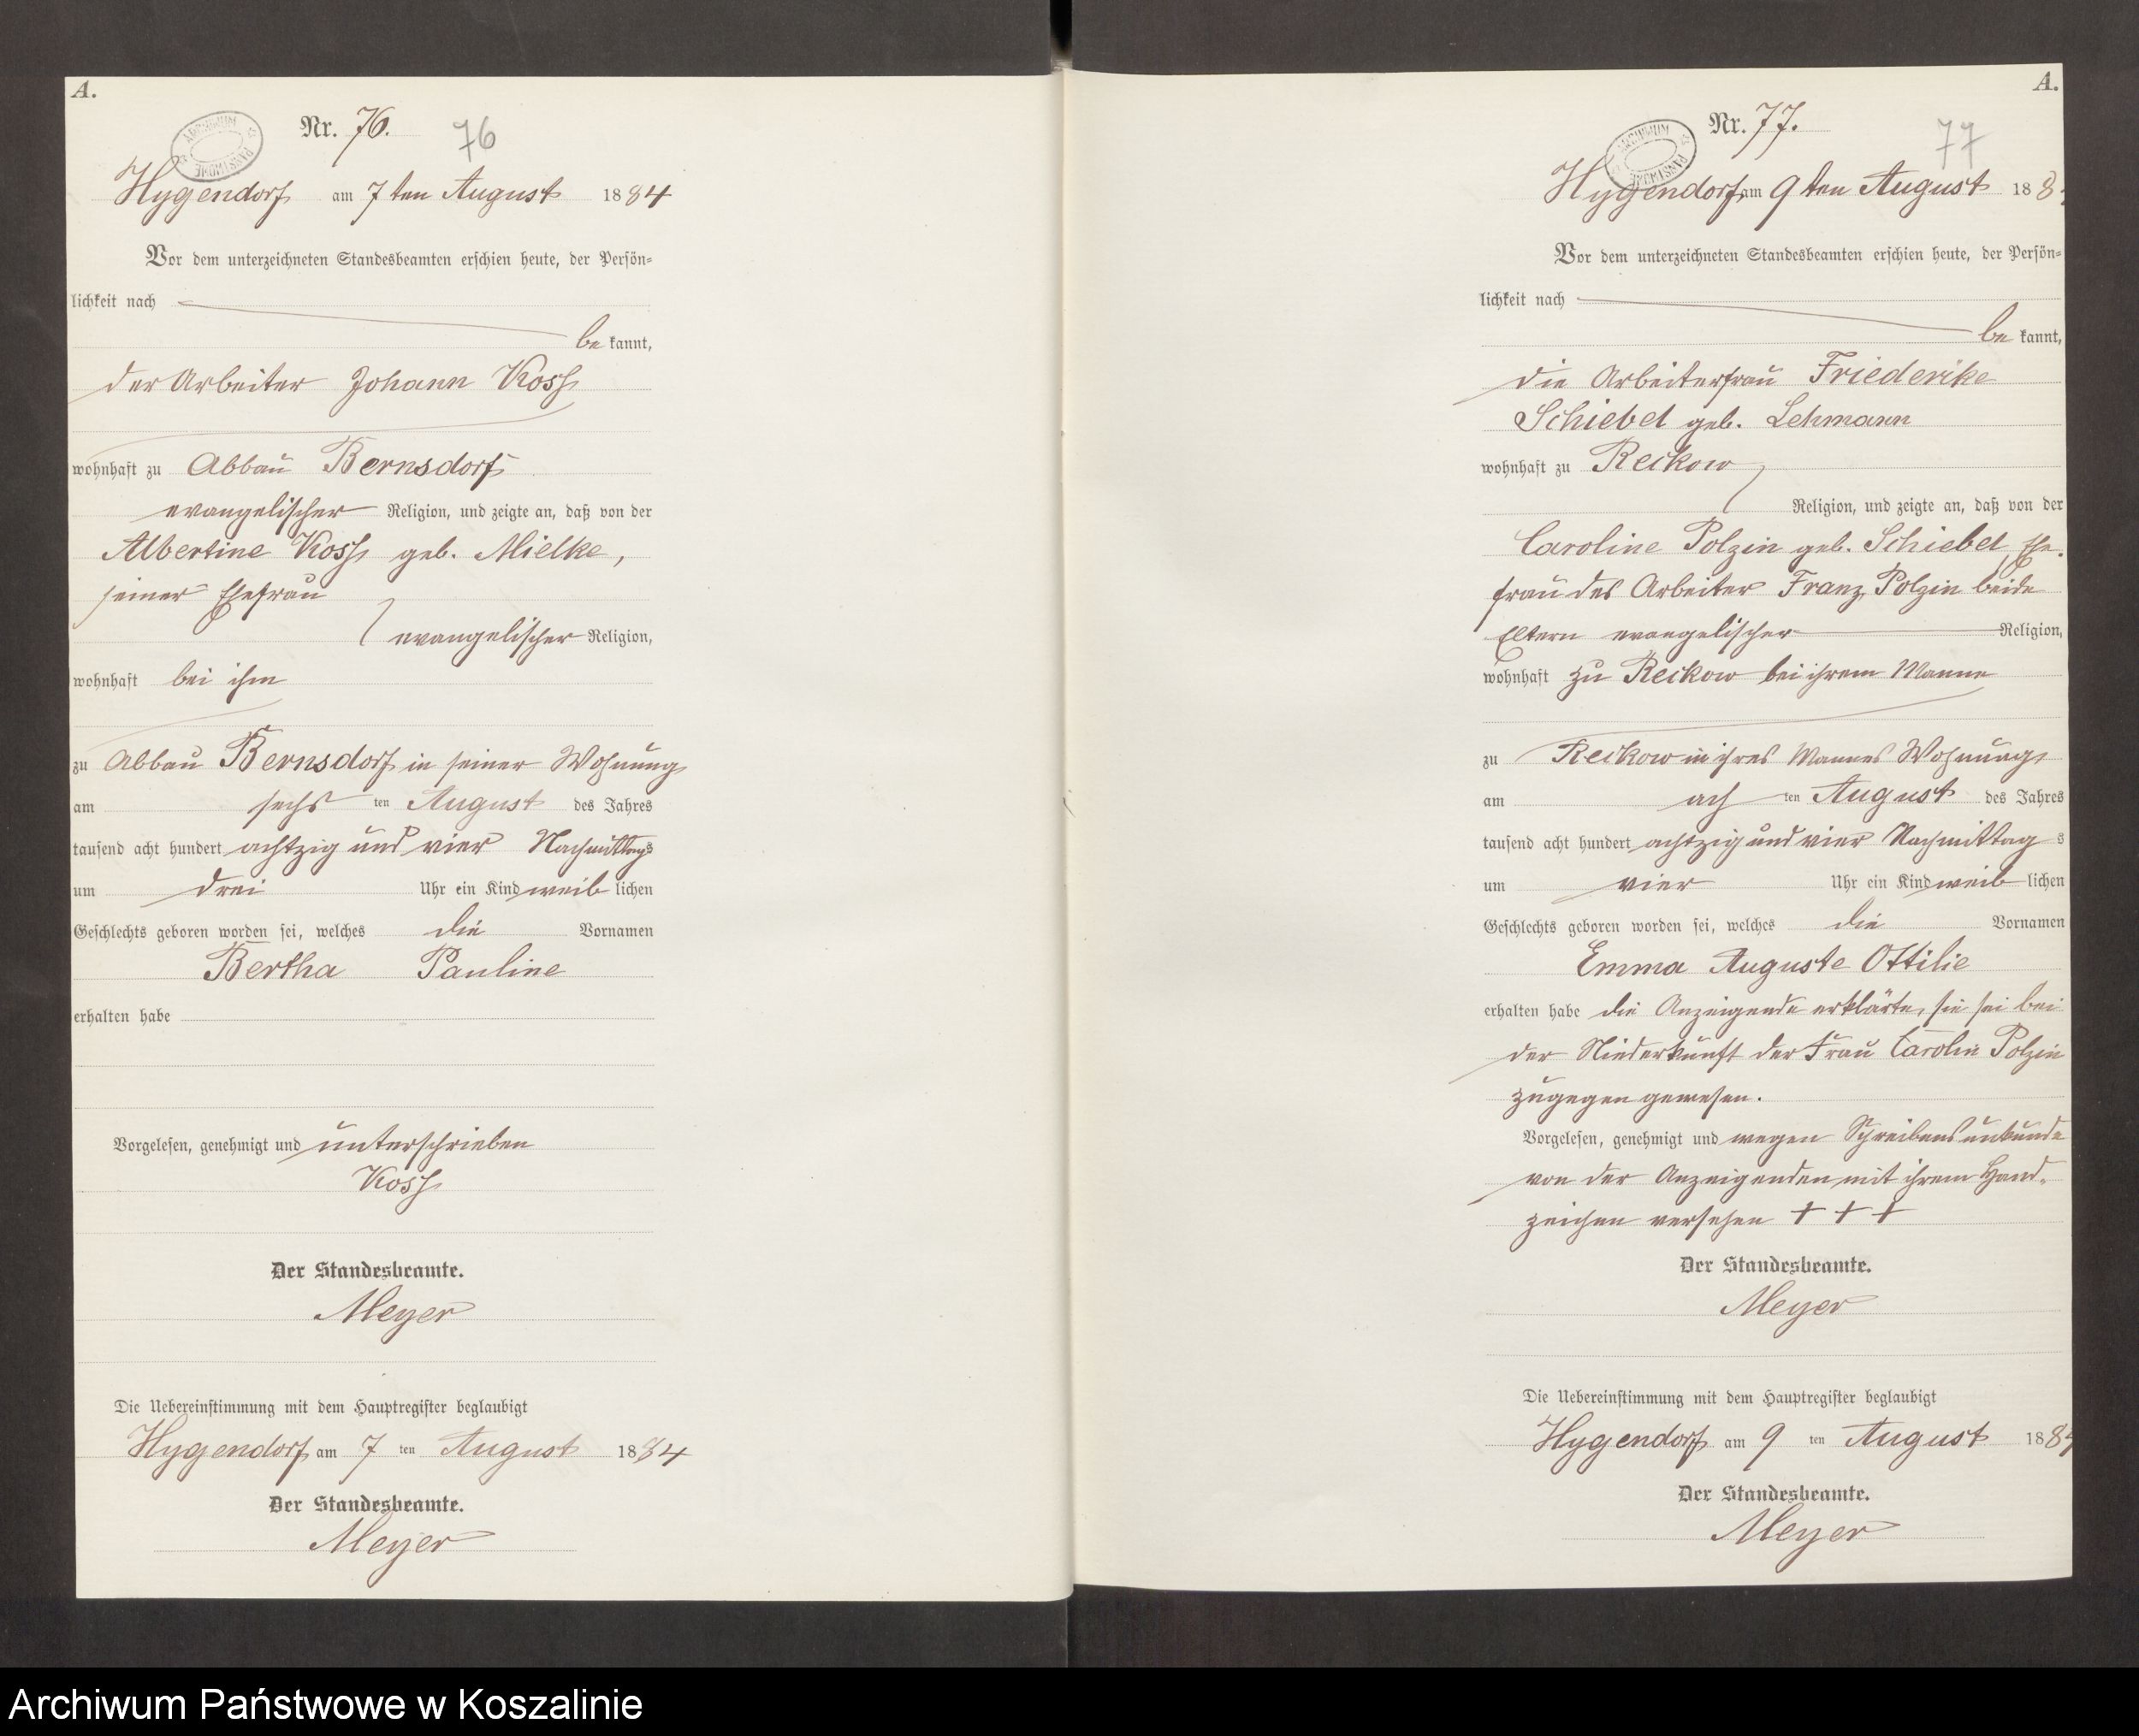 A.
Nr. 76.
76
Hygendorf am 7ten August 1884
Vor dem unterzeichneten Standesbeamten erschien heute, der Persön-
lichkeit nach
be kannt,
der Arbeiter Johann Koss
wohnhaft zu Abbau Bernsdorf
evangelischer Religion, und zeigte an, daß von der
Albertine Koss geb. Mielke,
seiner Ehefrau
evangelischer Religion,
wohnhaft bei ihm
zu Abbau Bernsdorf in seiner Wohnung
am sechs ten August des Jahres
tausend acht hundert achtzig und vier Nachmittags
um drei Uhr ein Kind weib lichen
Geschlechts geboren worden sei, welches die Vornamen
Bertha Pauline
erhalten habe
Vorgelesen, genehmigt und unterschrieben
Koss
Der Standesbeamte.
Meyer
Die Uebereinstimmung mit dem Hauptregister beglaubigt
Hygendorf am 7 ten August 1884
Der Standesbeamte.
Meyer
A.
Nr. 77.
77
Hygendorf am 9ten August 188
Vor dem unterzeichneten Standesbeamten erschien heute, der Persön-
lichkeit nach
be kannt,
die Arbeiterfrau Friederike
Schiebel geb. Lehmann
wohnhaft zu Reckow
Religion, und zeigte an, daß von der
Caroline Polzin geb. Schiebel, Ehe-
frau des Arbeiter Franz Polzin beide
Eltern evangelischer Religion,
wohnhaft zu Reckow bei ihrem Manne
zu Reckow in ihres Mannes Wohnung
am ach ten August des Jahres
tausend acht hundert achtzig und vier Nachmittag s
um vier Uhr ein Kind weib lichen
Geschlechts geboren worden sei, welches die Vornamen
Emma Auguste Ottilie
erhalten habe die Anzeigende erklärte, sie sei bei
der Niederkunft der Frau Carolin Polzin
zugegen gewesen.
Vorgelesen, genehmigt und wegen Schreibensunkunde
von der Anzeigenden mit ihrem Hand-
zeichen versehen + + +
Der Standesbeamte.
Meyer
Die Uebereinstimmung mit dem Hauptregister beglaubigt
Hygendorf am 9 ten August 1884
Der Standesbeamte.
Meyer
Archiwum Państwowe w Koszalinie